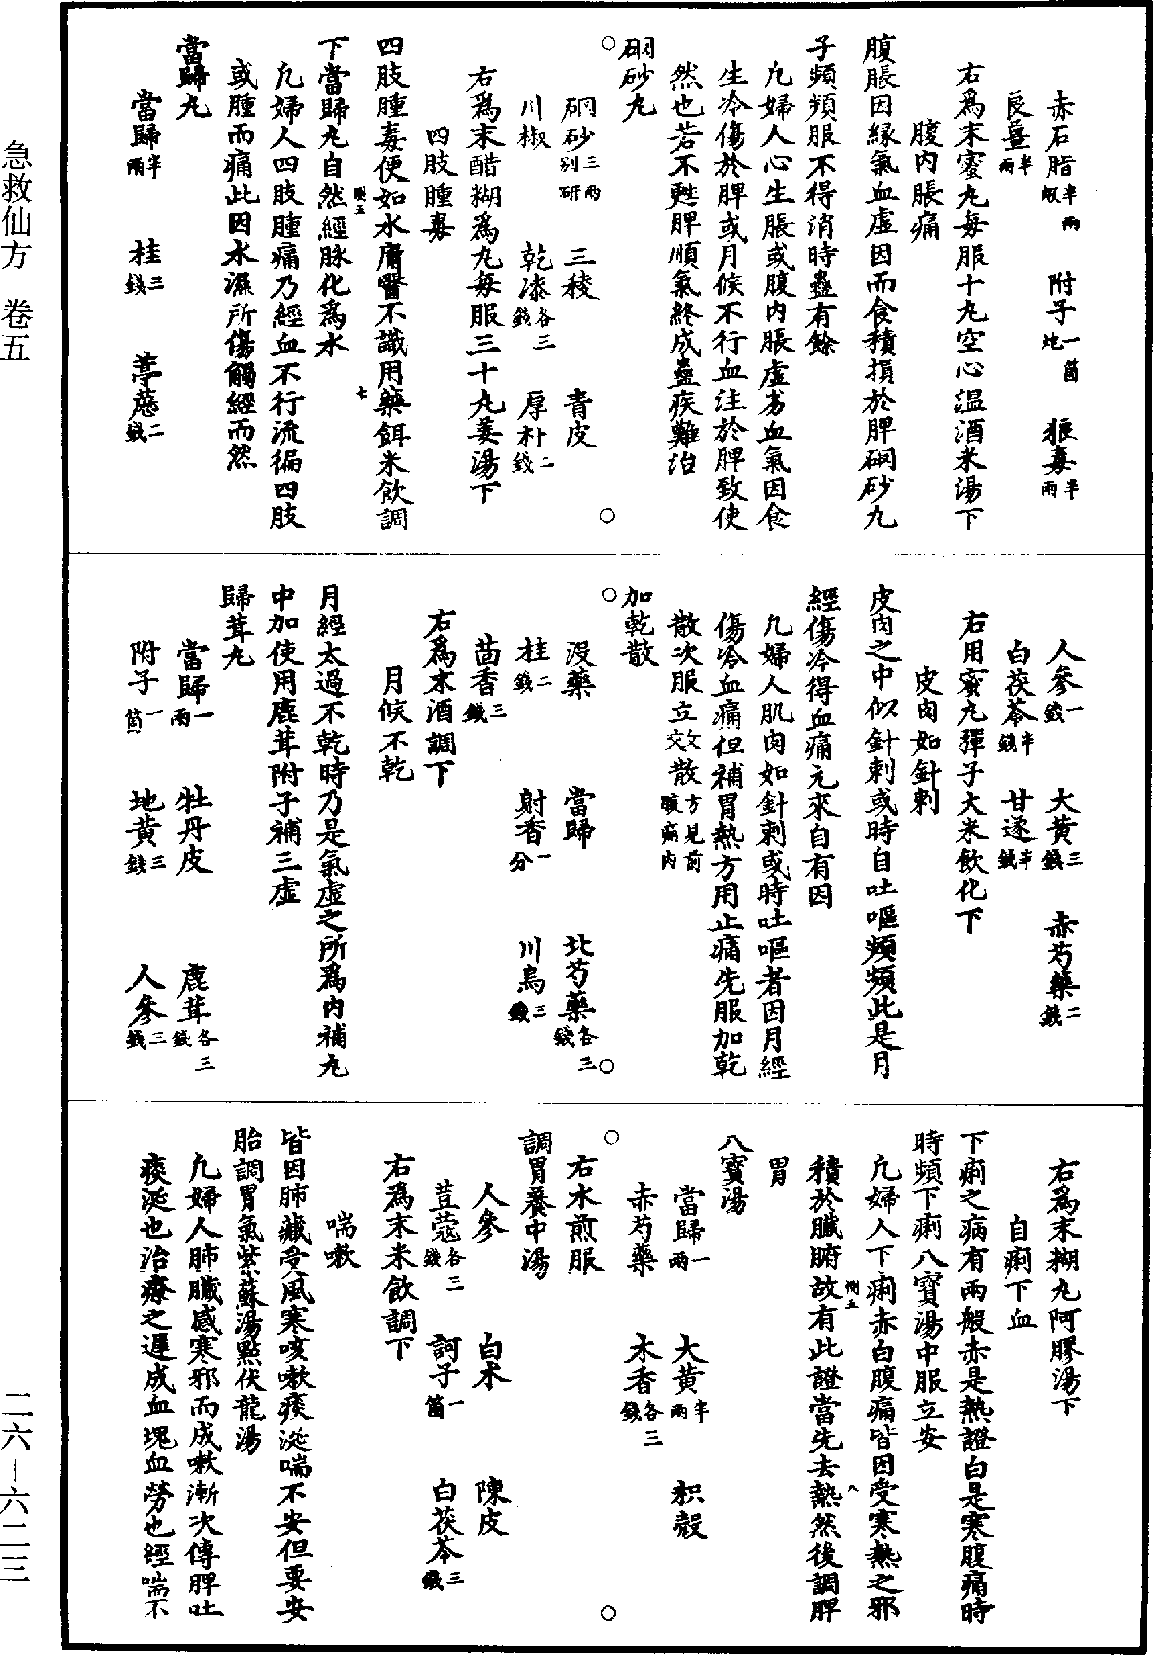 赤石脂半兩煆　附子一箇炮　狼毒半兩
良薑半兩
右爲末蜜丸每服十丸空心温酒米湯下
腹内脹痛
腹脹因緣氣血虚因而食積損於脾硇砂丸
子頻頻服不得消時蠱有餘
凢婦人心生脹或腹内脹虚劣血氣因食
生冷傷於脾或月候不行血注於脾致使
然也若不甦脾順氣終成蠱疾難治
硇砂丸
硇砂三兩别研　三稜　青皮
川椒　乾漆各三錢　厚朴二錢
右爲末醋糊爲丸每服三十丸薑湯下
四肢腫毒
四肢腫毒便如水庸醫不識用藥餌米飲調
下當歸丸自然經脉化爲水
凢婦人四肢腫痛乃經血不行流徧四肢
或腫而痛此因水濕所傷觸經而然
當歸丸
當歸半兩　桂三錢　葶藶二錢
人參一錢　大黄三錢　赤芍藥二錢
白茯苓半錢　甘遂半錢
右用蜜丸彈子大米飲化下
皮肉如針刺
皮肉之中似針刺或時自吐嘔頻頻此是月
經傷冷得血痛元來自有因
凢婦人肌肉如針刺或時吐嘔者因月經
傷冷血痛但補胃熱方用止痛先服加乾
散次服立效散方見前腹痛内
加乾散
没藥　當歸　北芍藥各三錢
桂二錢　射香一分　川烏三錢
茴香三錢
右爲末酒調下
月候不乾
月經太過不乾時乃是氣虚之所爲内補丸
中加使用鹿茸附子補三虚
歸茸丸
當歸一兩　牡丹皮　鹿茸各三錢
附子一箇　地黄三錢　人參三錢
右爲末糊丸阿膠湯下
自痢下血
下痢之病有兩般赤是熱證白是寒腹痛時
時頻下痢八寶湯中服立安
凢婦人下痢赤白腹痛皆因受寒熱之邪
積於臟腑故有此證當先去熱然後調脾
胃
八寶湯
當歸一兩　大黄半兩　枳殻
赤芍藥　木香各三錢
右水煎服
調胃養中湯
人參　白术　陳皮
荳蔻各三錢　訶子一箇　白茯苓三錢
右爲末米飲調下
喘嗽
皆因肺藏受風寒咳嗽痰涎喘不安但要安
胎調胃氣紫蘇湯點伏龍湯
凢婦人肺臟感寒邪而成嗽漸次傳脾吐
痰涎也治療之遲成血塊血勞也經喘不
急救仙方　卷五
二六—六二三